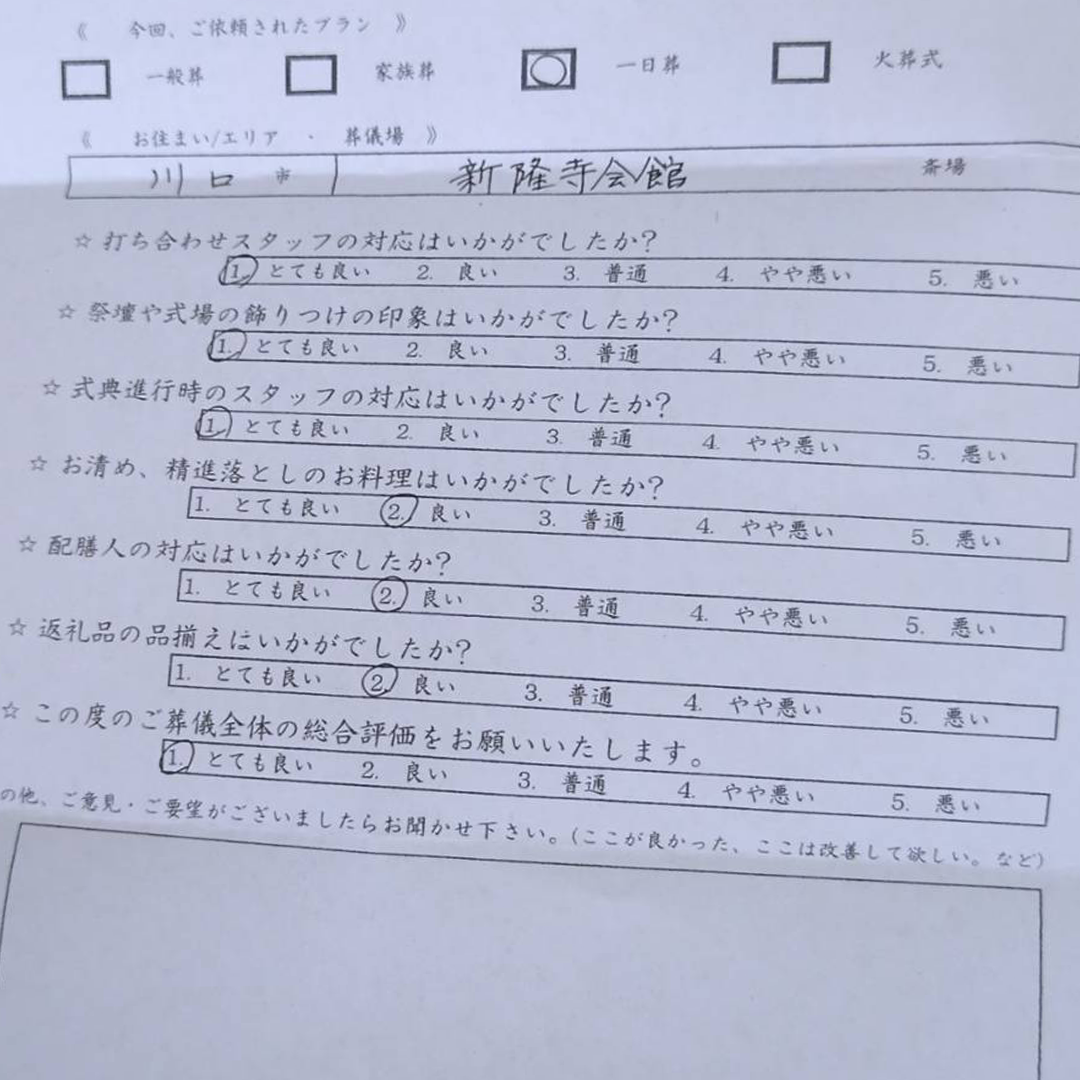 《 今回、ご依頼されたプラン 》
一般葬 家族葬 一日葬 火葬式
《 お住まい/エリア ・ 葬儀場 》
川口 市 新隆寺会館 斎場
☆ 打ち合わせスタッフの対応はいかがでしたか?
1. とても良い 2. 良い 3. 普通 4. やや悪い 5. 悪い
☆ 祭壇や式場の飾りつけの印象はいかがでしたか?
1. とても良い 2. 良い 3. 普通 4. やや悪い 5. 悪い
☆ 式典進行時のスタッフの対応はいかがでしたか?
1. とても良い 2. 良い 3. 普通 4. やや悪い 5. 悪い
☆ お清め、精進落としのお料理はいかがでしたか?
1. とても良い 2. 良い 3. 普通 4. やや悪い 5. 悪い
☆ 配膳人の対応はいかがでしたか?
1. とても良い 2. 良い 3. 普通 4. やや悪い 5. 悪い
☆ 返礼品の品揃えはいかがでしたか?
1. とても良い 2. 良い 3. 普通 4. やや悪い 5. 悪い
☆ この度のご葬儀全体の総合評価をお願いいたします。
1. とても良い 2. 良い 3. 普通 4. やや悪い 5. 悪い
の他、ご意見・ご要望がございましたらお聞かせ下さい。(ここが良かった、ここは改善して欲しい。など)